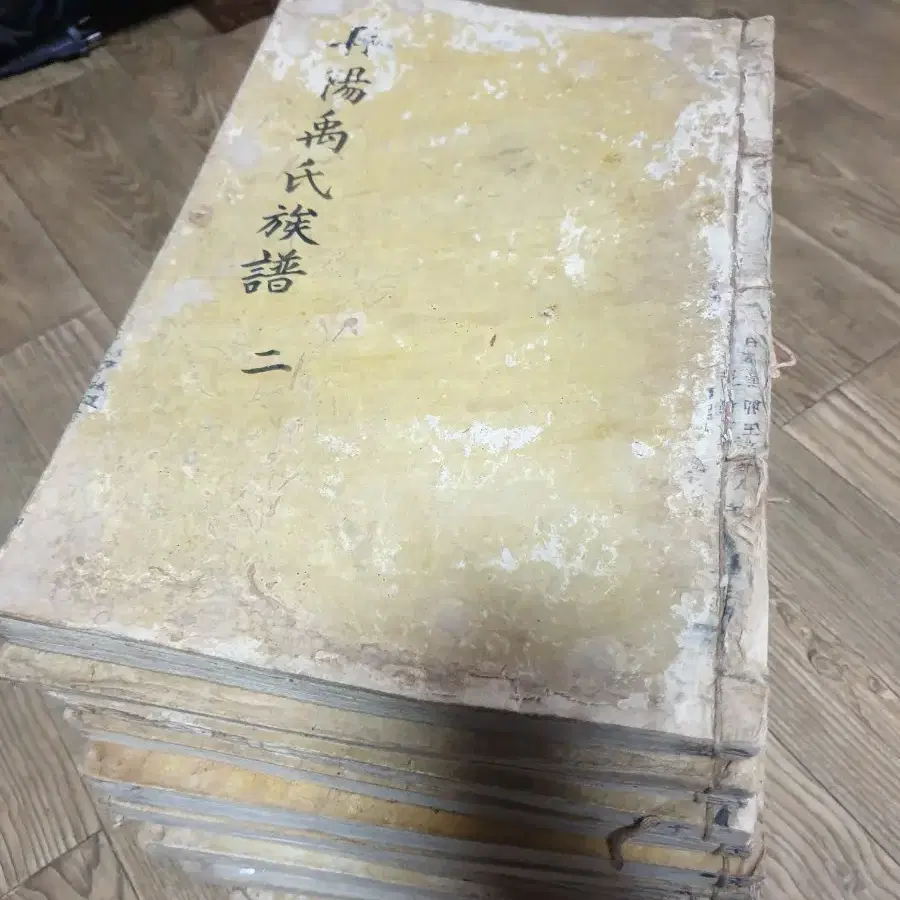 丹陽禹氏族譜
二